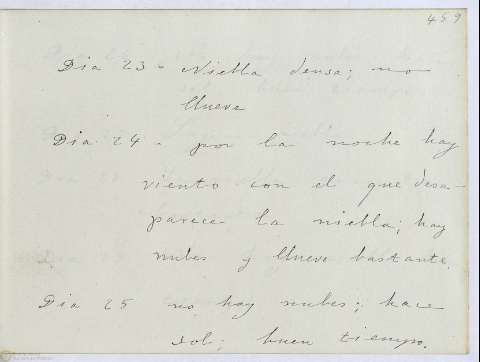 459
Dia 23 - Niebla densa; no
llueve
Dia 24 - por la noche hay
viento con el que desa-
parece la niebla; hay
nubes y llueve bastante.
Dia 25 no hay nubes; hace
sol; buen tiempo.